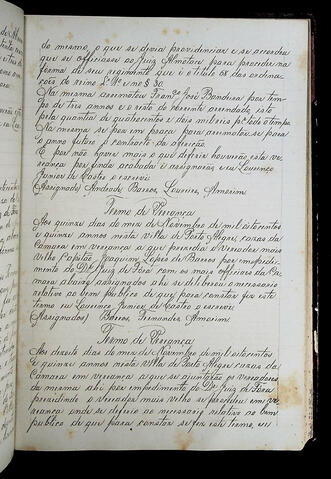 do mesmo o que se devia providenciar e se acordou
que se officiasse ao Juiz Almotace para proceder na
forma de seu regimento que é o titulo 68 das ordina-
ções L.º 1º e no § 30.
Na mesma arrematou Fran.co José Bandeira por tem-
po de tres annos e o resto do presente
pela quantia de quatrocentos e dois mil reis p.r todo o tempo.
Na mesma se poz em praça para arrematar se para
o anno futuro o contracto da afferição
E por não haver mais o que deferir houverão esta ve-
rança por finda acabada e assignarão eu Lourenço
Junior de Castro o escrevi
(Assignados) Andrade Barros, Amorim
Termo de Vereança
Aos quinze dias do mez de Novembro de mil oitocentos
e quinze annos nesta villa de Porto Alegre casas da
Camara em vereança a que presedia o Vereador mais
velho Capitão Joaquim Lopes de Barros por impedi-
mento do Dr. Juiz de Fora com os mais officiaes da Ca-
mara abaixo assignados ahi se deliberou o necessario
relativo ao bem publico de que para constar fiz este
termo eu Lourenço Junior de Castro o escrevi
(Assignados) Barros, Fernandes Amorim
Termo de Vereança
Aos dezoito dias do mez de Novembro de mil oitocentos
e quinze annos nesta Villa de Porto Alegre casas da
Camara em vereança a que se ajuntarão os vereadores
da mesma ahi por impedimento do Dr. Juiz de Fora
presidindo o vereador mais velho se procedeu em ve-
reança onde se deferio ao necessario relativo ao bem
publico de que para constar se fez este termo, eu